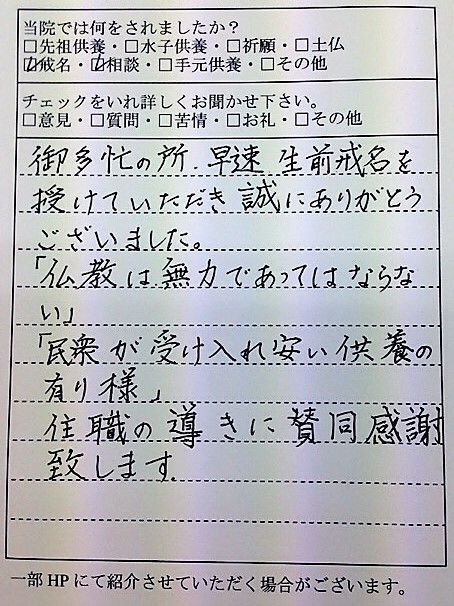 当院では何をされましたか？
□先祖供養・□水子供養・□祈願・□土仏
☑戒名・☑相談・□手元供養・□その他
チェックをいれ詳しくお聞かせ下さい。
□意見・□質問・□苦情・□お礼・□その他
御多忙の所、早速 生前戒名を
授けていただき 誠にありがとう
ございました。
「仏教は無力であってはならな
い」
「民衆が受け入れ安い供養の
有り様」
住職の導きに賛同感謝
致します。
一部HPにて紹介させていただく場合がございます。